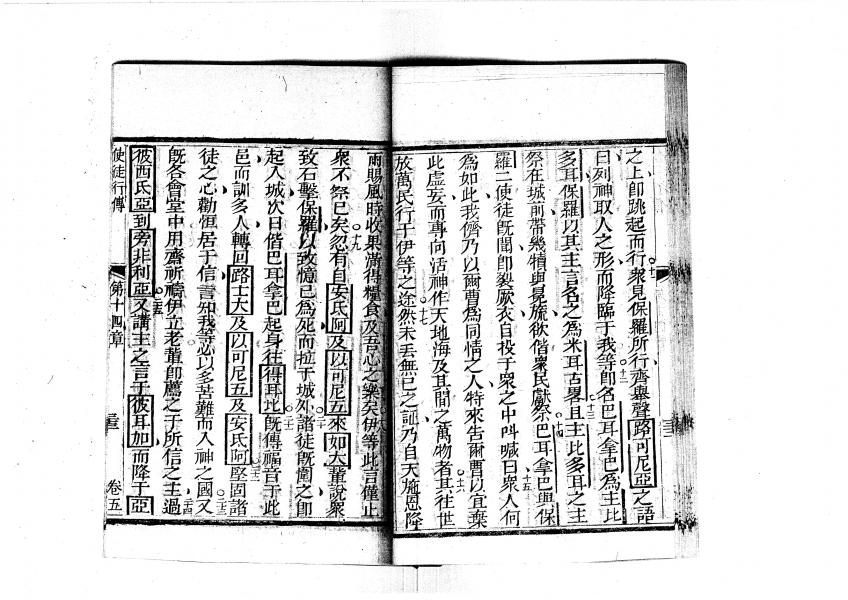 之上卽跳起而行衆見保羅所行齊舉聲路可尼亞之語
曰列神取人之形而降臨于我等卽名巴耳拿巴爲主比
多耳保羅以其主言名之爲米耳古畧且主比多耳之主
祭在城前帶幾犢與冕旒欲偕衆民獻祭巴耳拿巴與保
羅二使徒旣聞卽裂厥衣自投于衆之中呌喊曰衆人何
爲如此我儕乃以爾曹爲同情之人特來吿爾曹以宜棄
此虛妄而專向活神作天地海及其間之萬物者其往世
放萬民行于伊等之途然未丟無已之証乃自天施恩降
雨賜風時收果滿得糧食及吾心之樂矣伊等此言僅止
衆不祭已矣忽有自安氏阿及以可尼五來如大輩說衆
致石擊保羅以致憶已爲死而拉于城外諸徒旣圍之卽
起入城次日偕巴耳拿巴起身往得耳比旣傳福音于此
邑而訓多人轉回路士大及以可尼五及安氏阿堅固諸
徒之心勸恒居于信言知我等必以多苦難而入神之國又
旣各會堂中用齋祈禱伊立老輩卽薦之于所信之主過
彼西氏亞到旁非利亞又講主之言于彼耳加而降于亞
使徒行傳 第十四章 三三 卷五